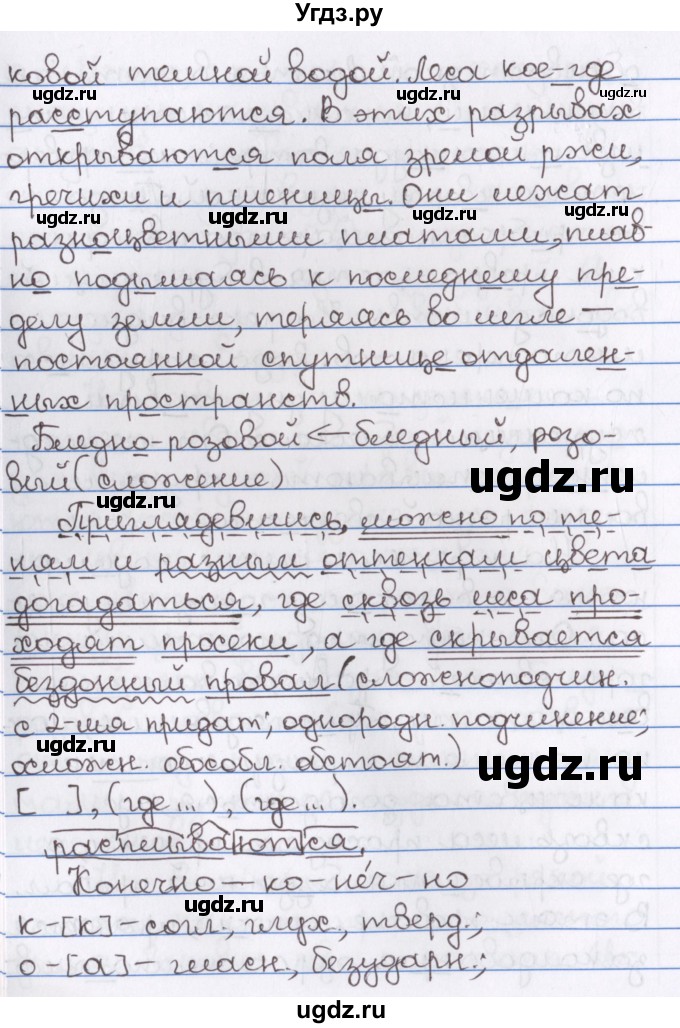 Угдз.ру
ковой темной водой. Леса кое-где
ugdz.ru ugdz.ru
расступаются. В этих разрывах
открываются поля зрелой ржи,
ugdz.ru
гречихи и пшеницы. Они лежат
ugdz.ru ugdz.ru ugdz.ru
разноцветными платами, плав-
но подымаясь к последнему пре-
делу земли, теряясь во мгле –
постоянной спутнице отдален-
ных пространств.
ugdz.ru
Бледно-розовой < бледный, розо-
ugdz.ru
вый (сложение)
ugdz.ru
Приглядевшись, можно по те-
ням и разным оттенкам цвета
догадаться, где сквозь леса про-
ходят просеки, а где скрывается
бездонный провал (сложноподчин.
с 2-мя придат; однородн. подчинение;
ugdz.ru
осложн. обособл. обстоят.)
ugdz.ru
[ ], (где ...), (где ...).
расплываются,
Конечно – ко-не́ч-но
ugdz.ru
к-[к]-согл., глух., тверд.;
о-[а]-гласн., безударн.;
ugdz.ru